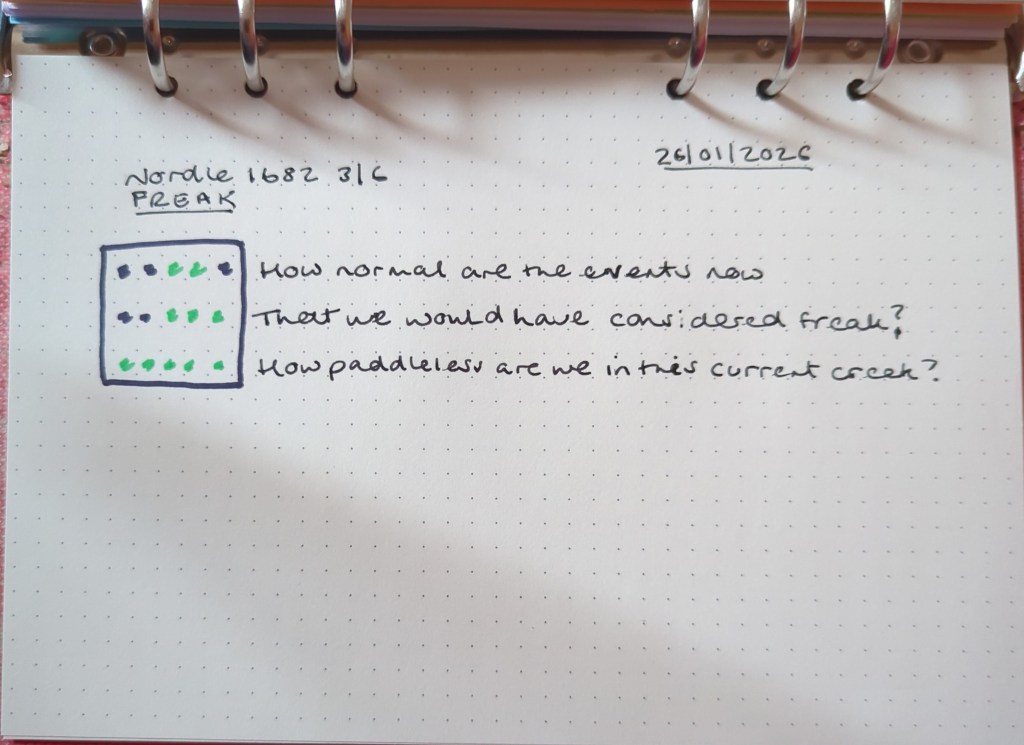 Wordle 1682 3/6
FREAK
26/01/2026
How normal are the events now
That we would have considered freak?
How paddleless are we in this current creek?